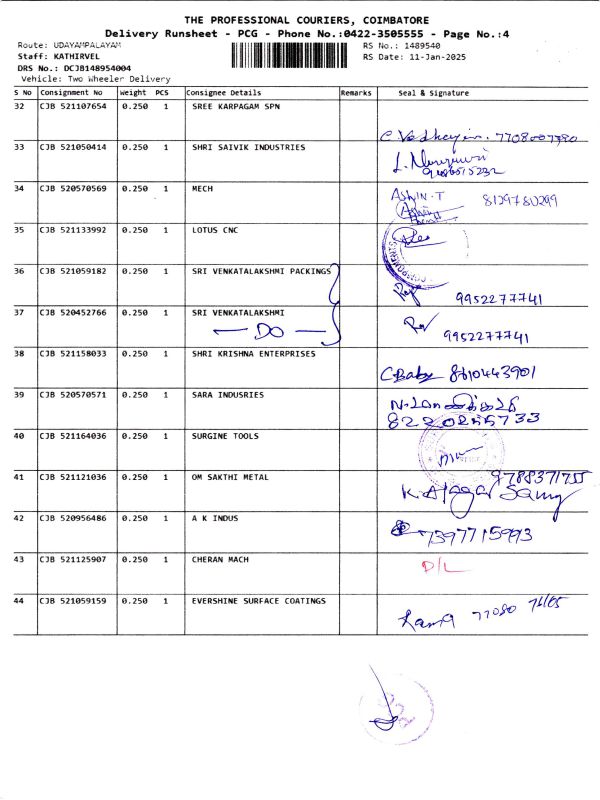 THE PROFESSIONAL COURIERS, COIMBATORE
Delivery Runsheet - PCG - Phone No.:0422-3505555 - Page No.:4
Route: UDAYAMPALAYAM RS No.: 1489540
Staff: KATHIRVEL RS Date: 11-Jan-2025
DRS No.: DCJB148954004
Vehicle: Two Wheeler Delivery
S No Consignment No Weight PCS Consignee Details Remarks Seal & Signature
32 CJB 521107654 0.250 1 SREE KARPAGAM SPN
33 CJB 521050414 0.250 1 SHRI SAIVIK INDUSTRIES
34 CJB 520570569 0.250 1 MECH ASHIN.T 8129780299
35 CJB 521133992 0.250 1 LOTUS CNC
36 CJB 521059182 0.250 1 SRI VENKATALAKSHMI PACKINGS 9952277741
37 CJB 520452766 0.250 1 SRI VENKATALAKSHMI 9952277741
DO
38 CJB 521158033 0.250 1 SHRI KRISHNA ENTERPRISES C Baby 8610443901
39 CJB 520570571 0.250 1 SARA INDUSRIES
40 CJB 521164036 0.250 1 SURGINE TOOLS
41 CJB 521121036 0.250 1 OM SAKTHI METAL 9788371755
42 CJB 520956486 0.250 1 A K INDUS 7397715993
43 CJB 521125907 0.250 1 CHERAN MACH D/L
44 CJB 521059159 0.250 1 EVERSHINE SURFACE COATINGS